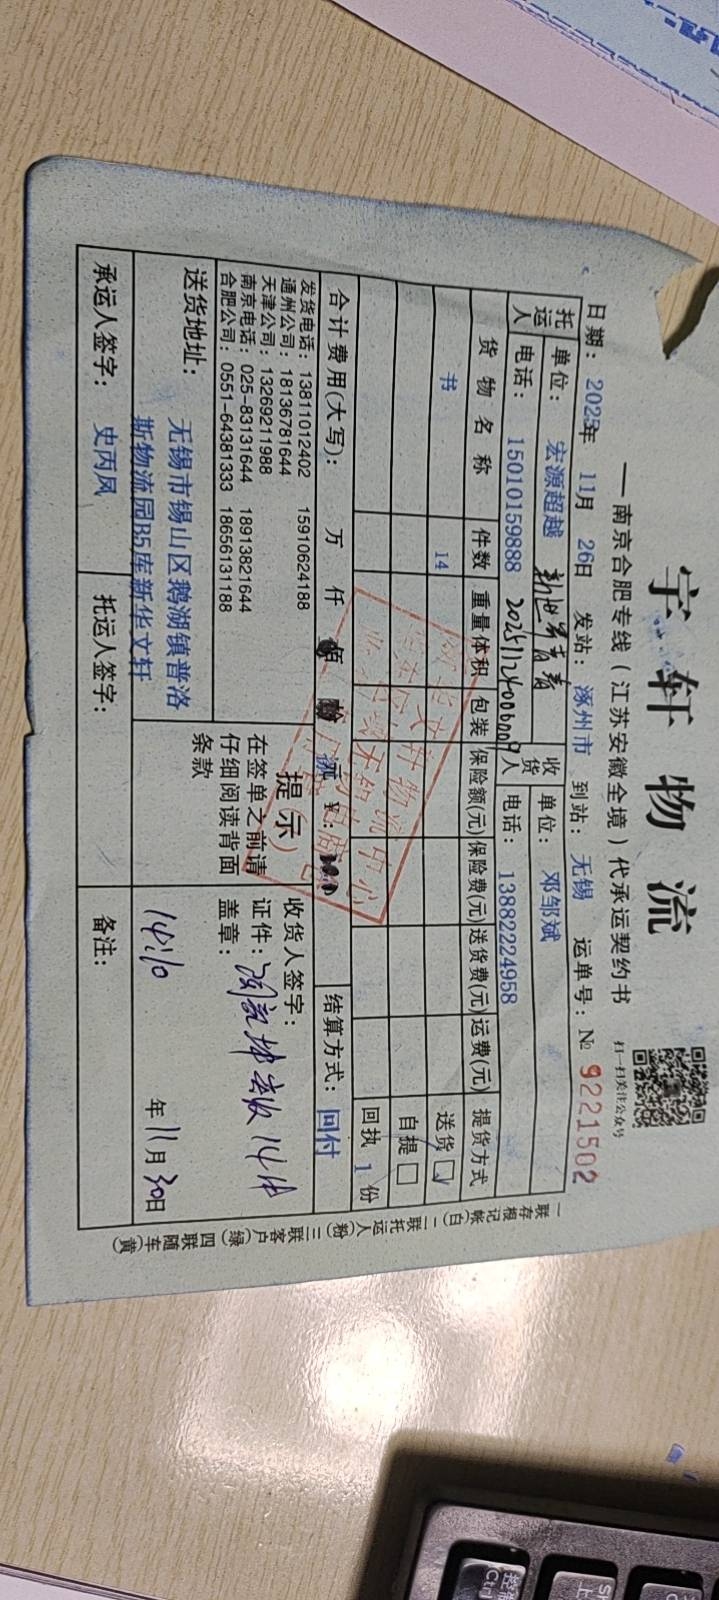 宇轩物流
扫一扫关注公众号
—南京合肥专线(江苏安徽全境)代承运契约书
日期: 2025年 11月 26日 发站: 涿州市 到站: 无锡 运单号: № 9221502
托运人 单位: 宏源超越 新世界青青 收货人 单位: 邓邹斌
电话: 15010159888 20251124006009 电话: 13882224958
货物名称 件数 重量体积 包装 保险额(元) 保险费(元) 送货费(元) 运费(元) 提货方式
书 14 送货☑
自提□
回执 1 份
合计费用(大写): 万 仟 佰 拾 元 结算方式: 回付
发货电话: 13811012402 15910624188
通州公司: 18136781644
天津公司: 13269211988
南京电话: 025-83131644 18913821644
合肥公司: 0551-64381333 18656131188
提示
在签单之前请
仔细阅读背面
条款
收货人签字:
证件: 实收14件
盖章:
送货地址: 无锡市锡山区鹅湖镇普洛
斯物流园B5库新华文轩
14:10 年 11月 30日
承运人签字: 史丙凤 托运人签字: 备注:
一联存根记帐(白) 二联托运人(粉) 三联客户(绿) 四联随车(黄)
控制
Ctrl
上